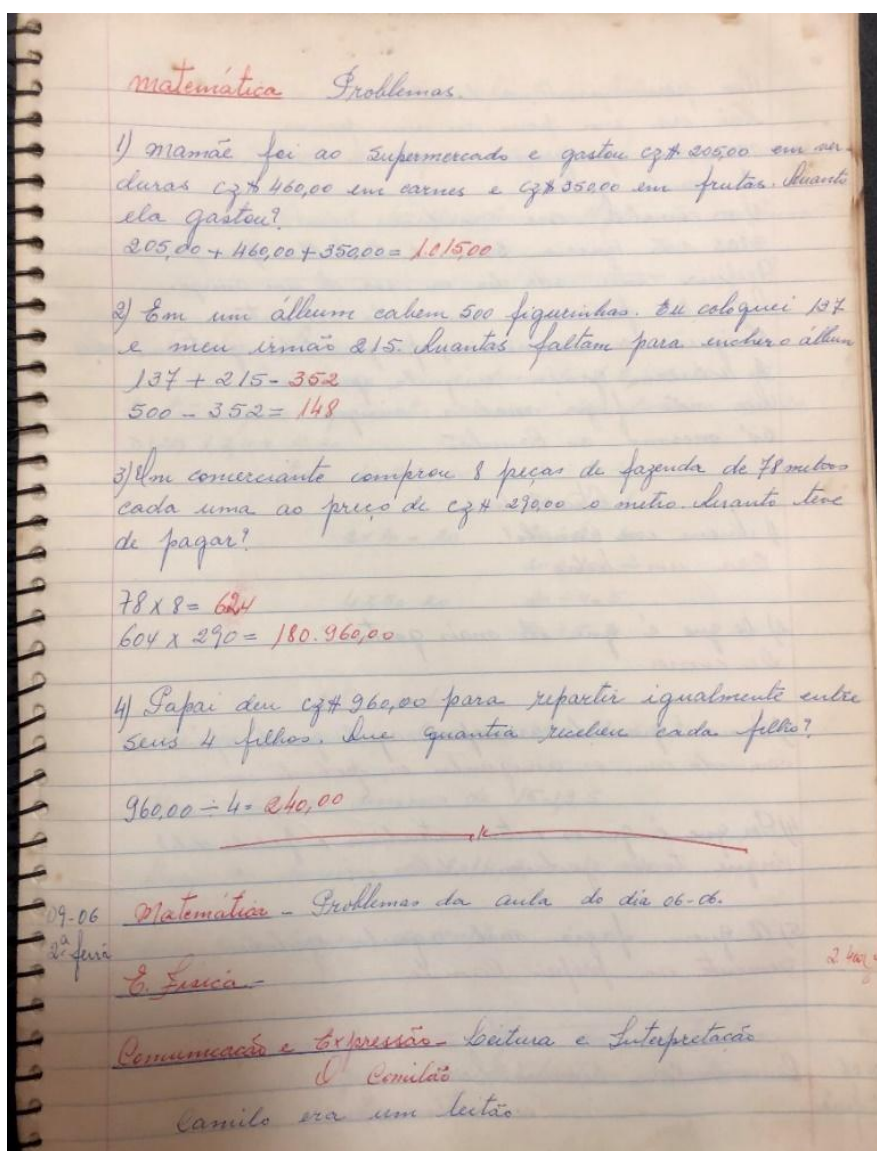 Matemática Problemas.
1) Mamãe foi ao Supermercado e gastou cz$ 205,00 em ver
duras cz$ 460,00 em carnes e cz$ 350,00 em frutas. Quanto
ela gastou?
205,00 + 460,00 + 350,00 = 1.015,00
2) Em um álbum cabem 500 figurinhas. Eu coloquei 137
e meu irmão 215. Quantas faltam para encher o álbum
137 + 215 - 352
500 - 352 = 148
3) Um comerciante comprou 8 peças de fazenda de 78 metros
cada uma ao preço de cz$ 290,00 o metro. Quanto teve
de pagar?
78 x 8 = 624
604 x 290 = 180.960,00
4) Papai deu cz$ 960,00 para repartir igualmente entre
seus 4 filhos. Que quantia recebeu cada filho?
960,00 ÷ 4 = 240,00
09-06 Matemática - Problemas da aula do dia 06-06.
2ª feira
E. Física -
Comunicação e Expressão - Leitura e Interpretação
O Comilão
Camilo era um leitão